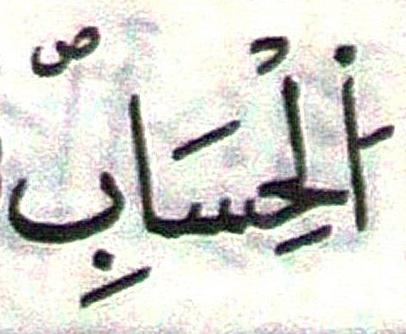 اَ۬لْحِسَابِۖ